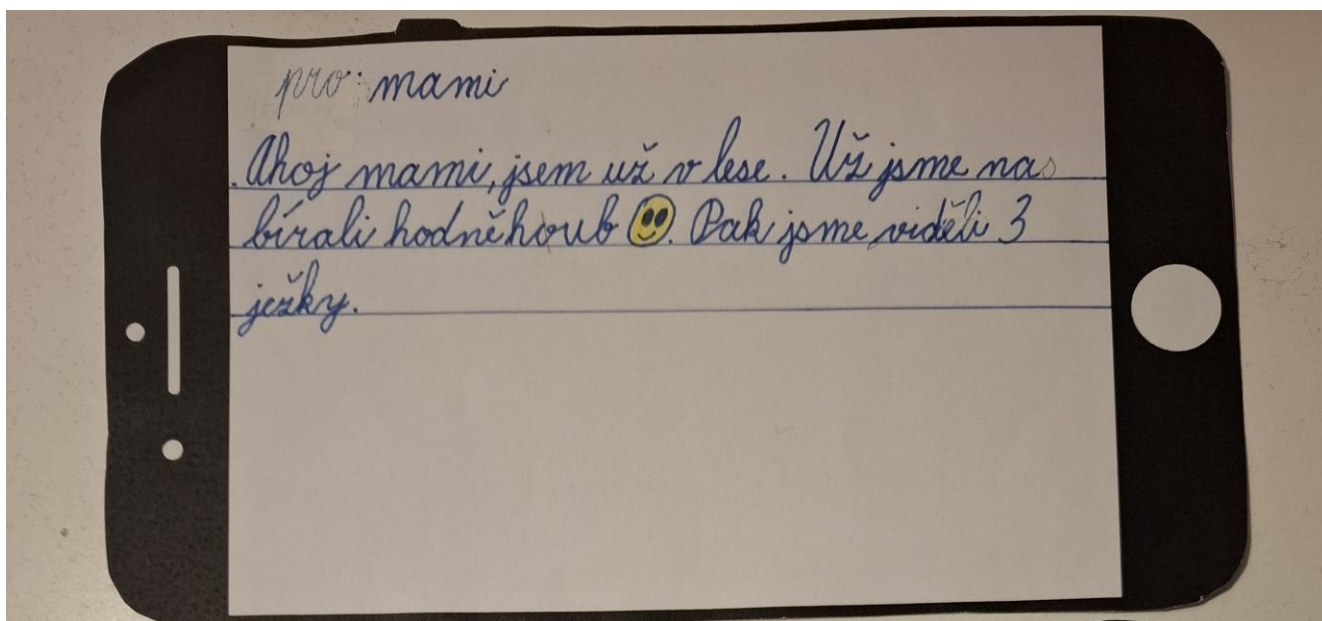 pro: mami
Ahoj mami, jsem už v lese. Už jsme na
bírali hodně hub 🙂. Pak jsme viděli 3
ježky.